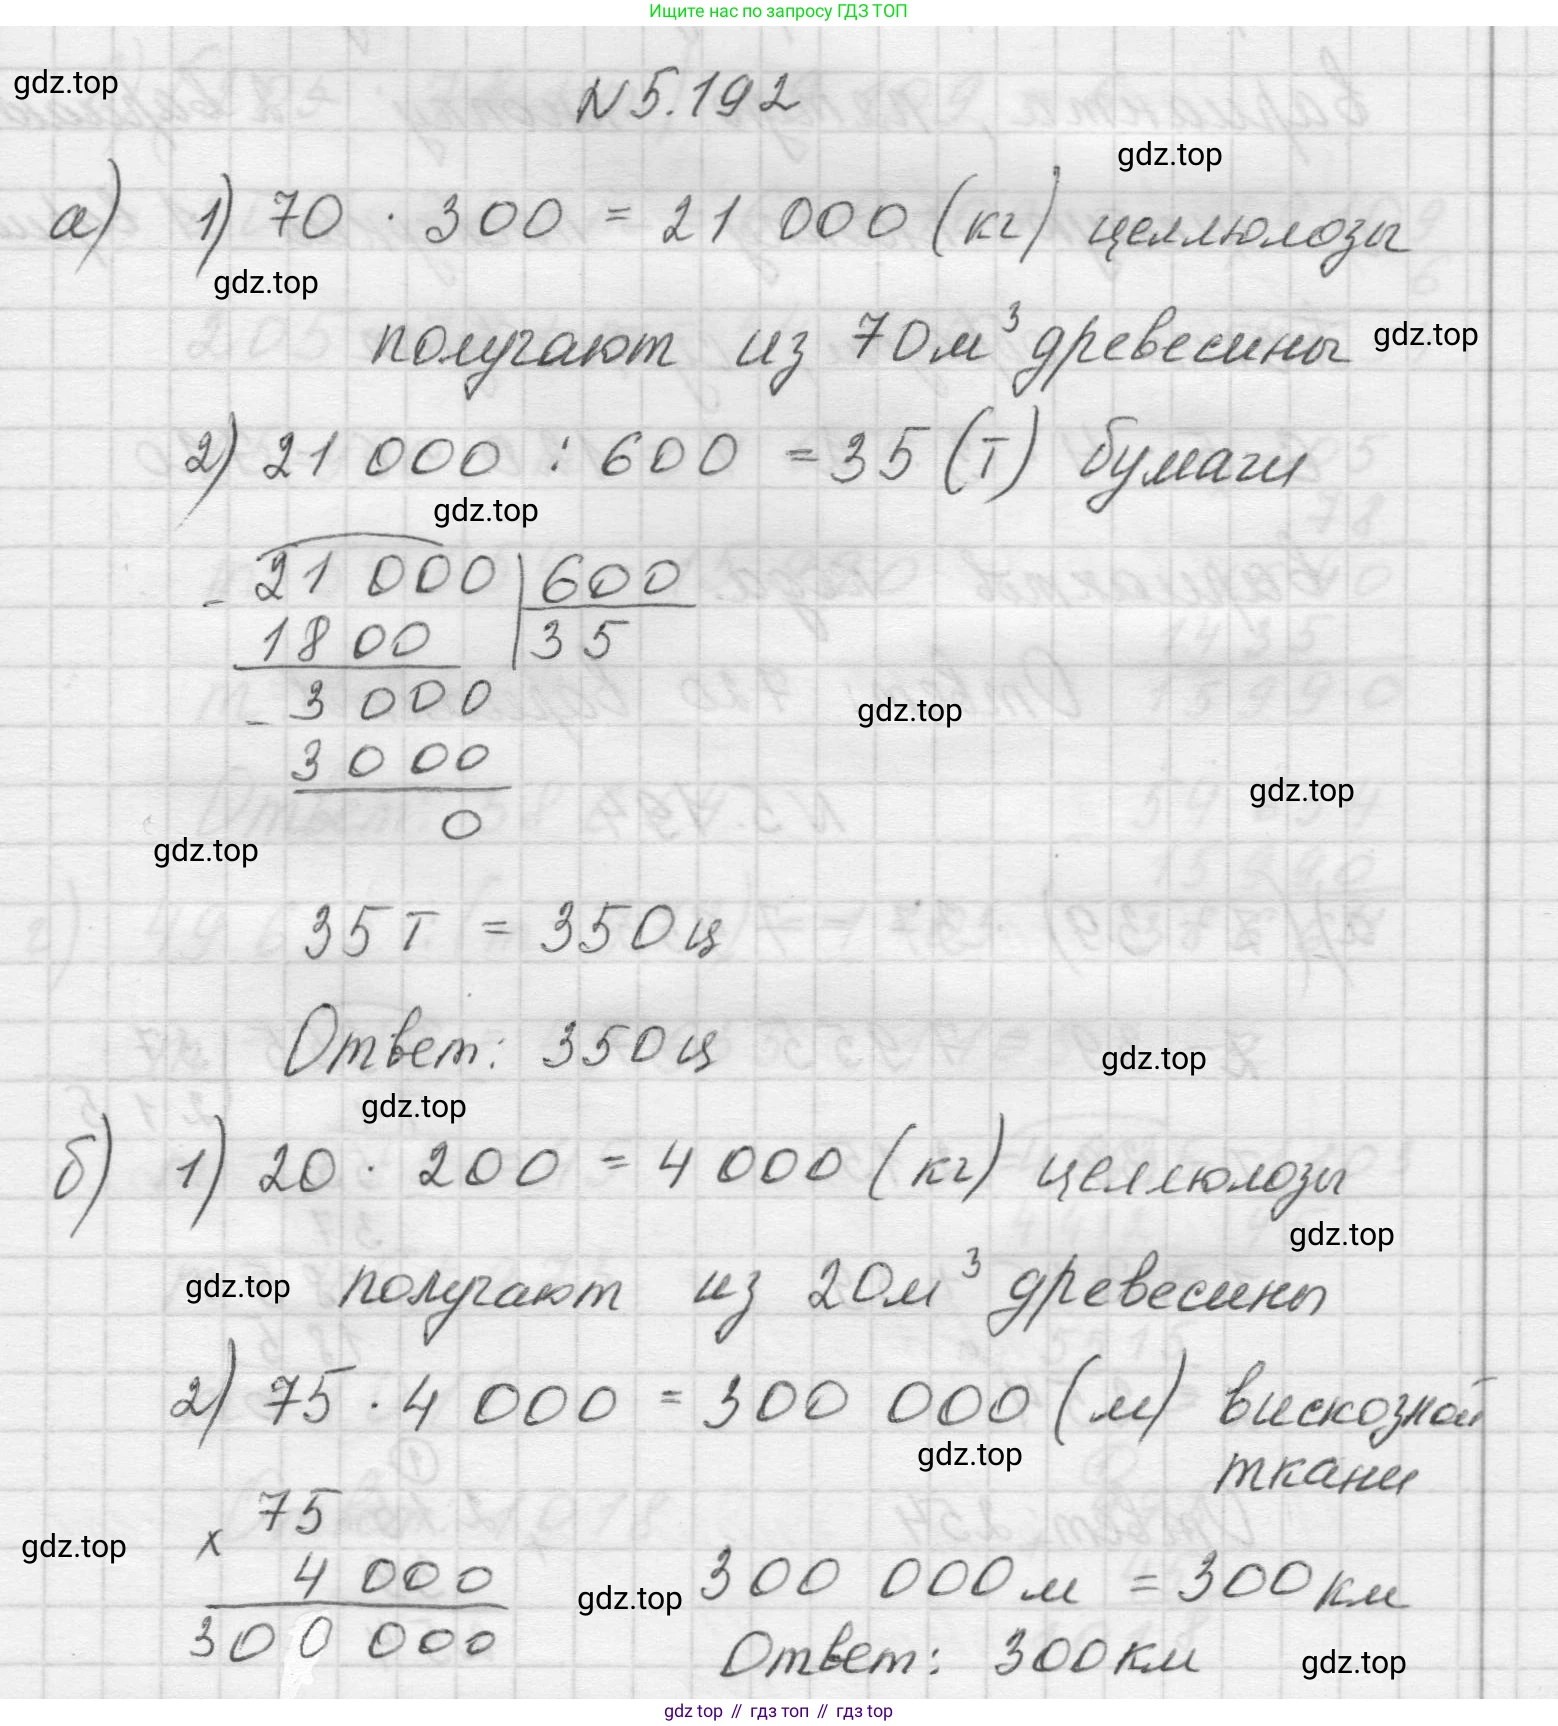 Ищите нас по запросу ГДЗ ТОП
gdz.top
N 5.192
gdz.top
а) 1) 70 · 300 = 21 000 (кг) целлюлозы
gdz.top
получают из 70м³ древесины gdz.top
2) 21 000 : 600 = 35 (т) бумаги
gdz.top
- 21 000 | 600
1800 | 35
- 3000
gdz.top
3000
gdz.top
0
gdz.top
35 т = 350 ц
Ответ: 350 ц
gdz.top
gdz.top
б) 1) 20 · 200 = 4 000 (кг) целлюлозы
gdz.top
gdz.top получают из 20м³ древесины
2) 75 · 4 000 = 300 000 (м) вискозной
gdz.top
ткани
75
gdz.top x
4 000
gdz.top 300 000 м = 300 км
300 000
Ответ: 300 км gdz.top
gdz top // гдз топ // gdz top